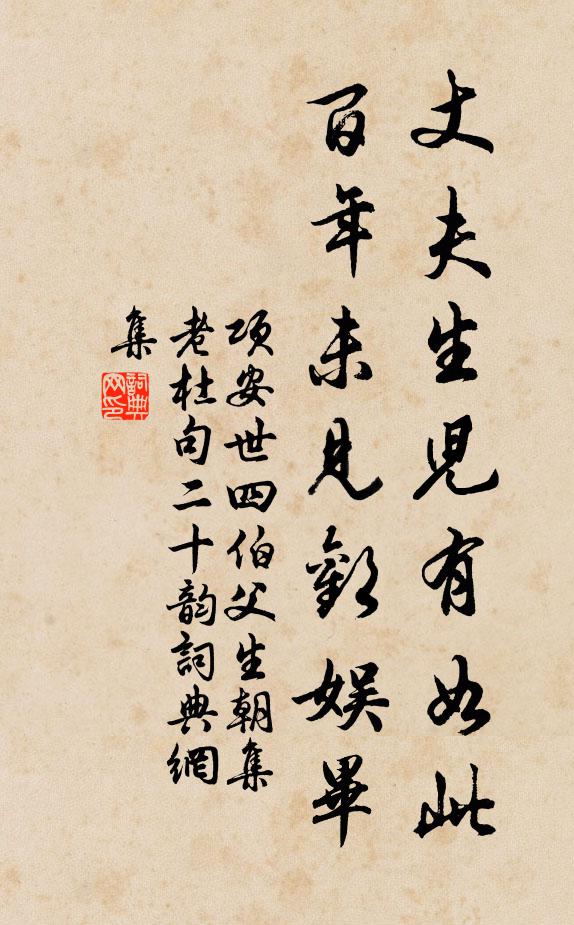 丈夫生児有如此
百年未見歡娛畢
项安世四伯父生朝集
老杜句二十韵詞典網
集
詞典
网印